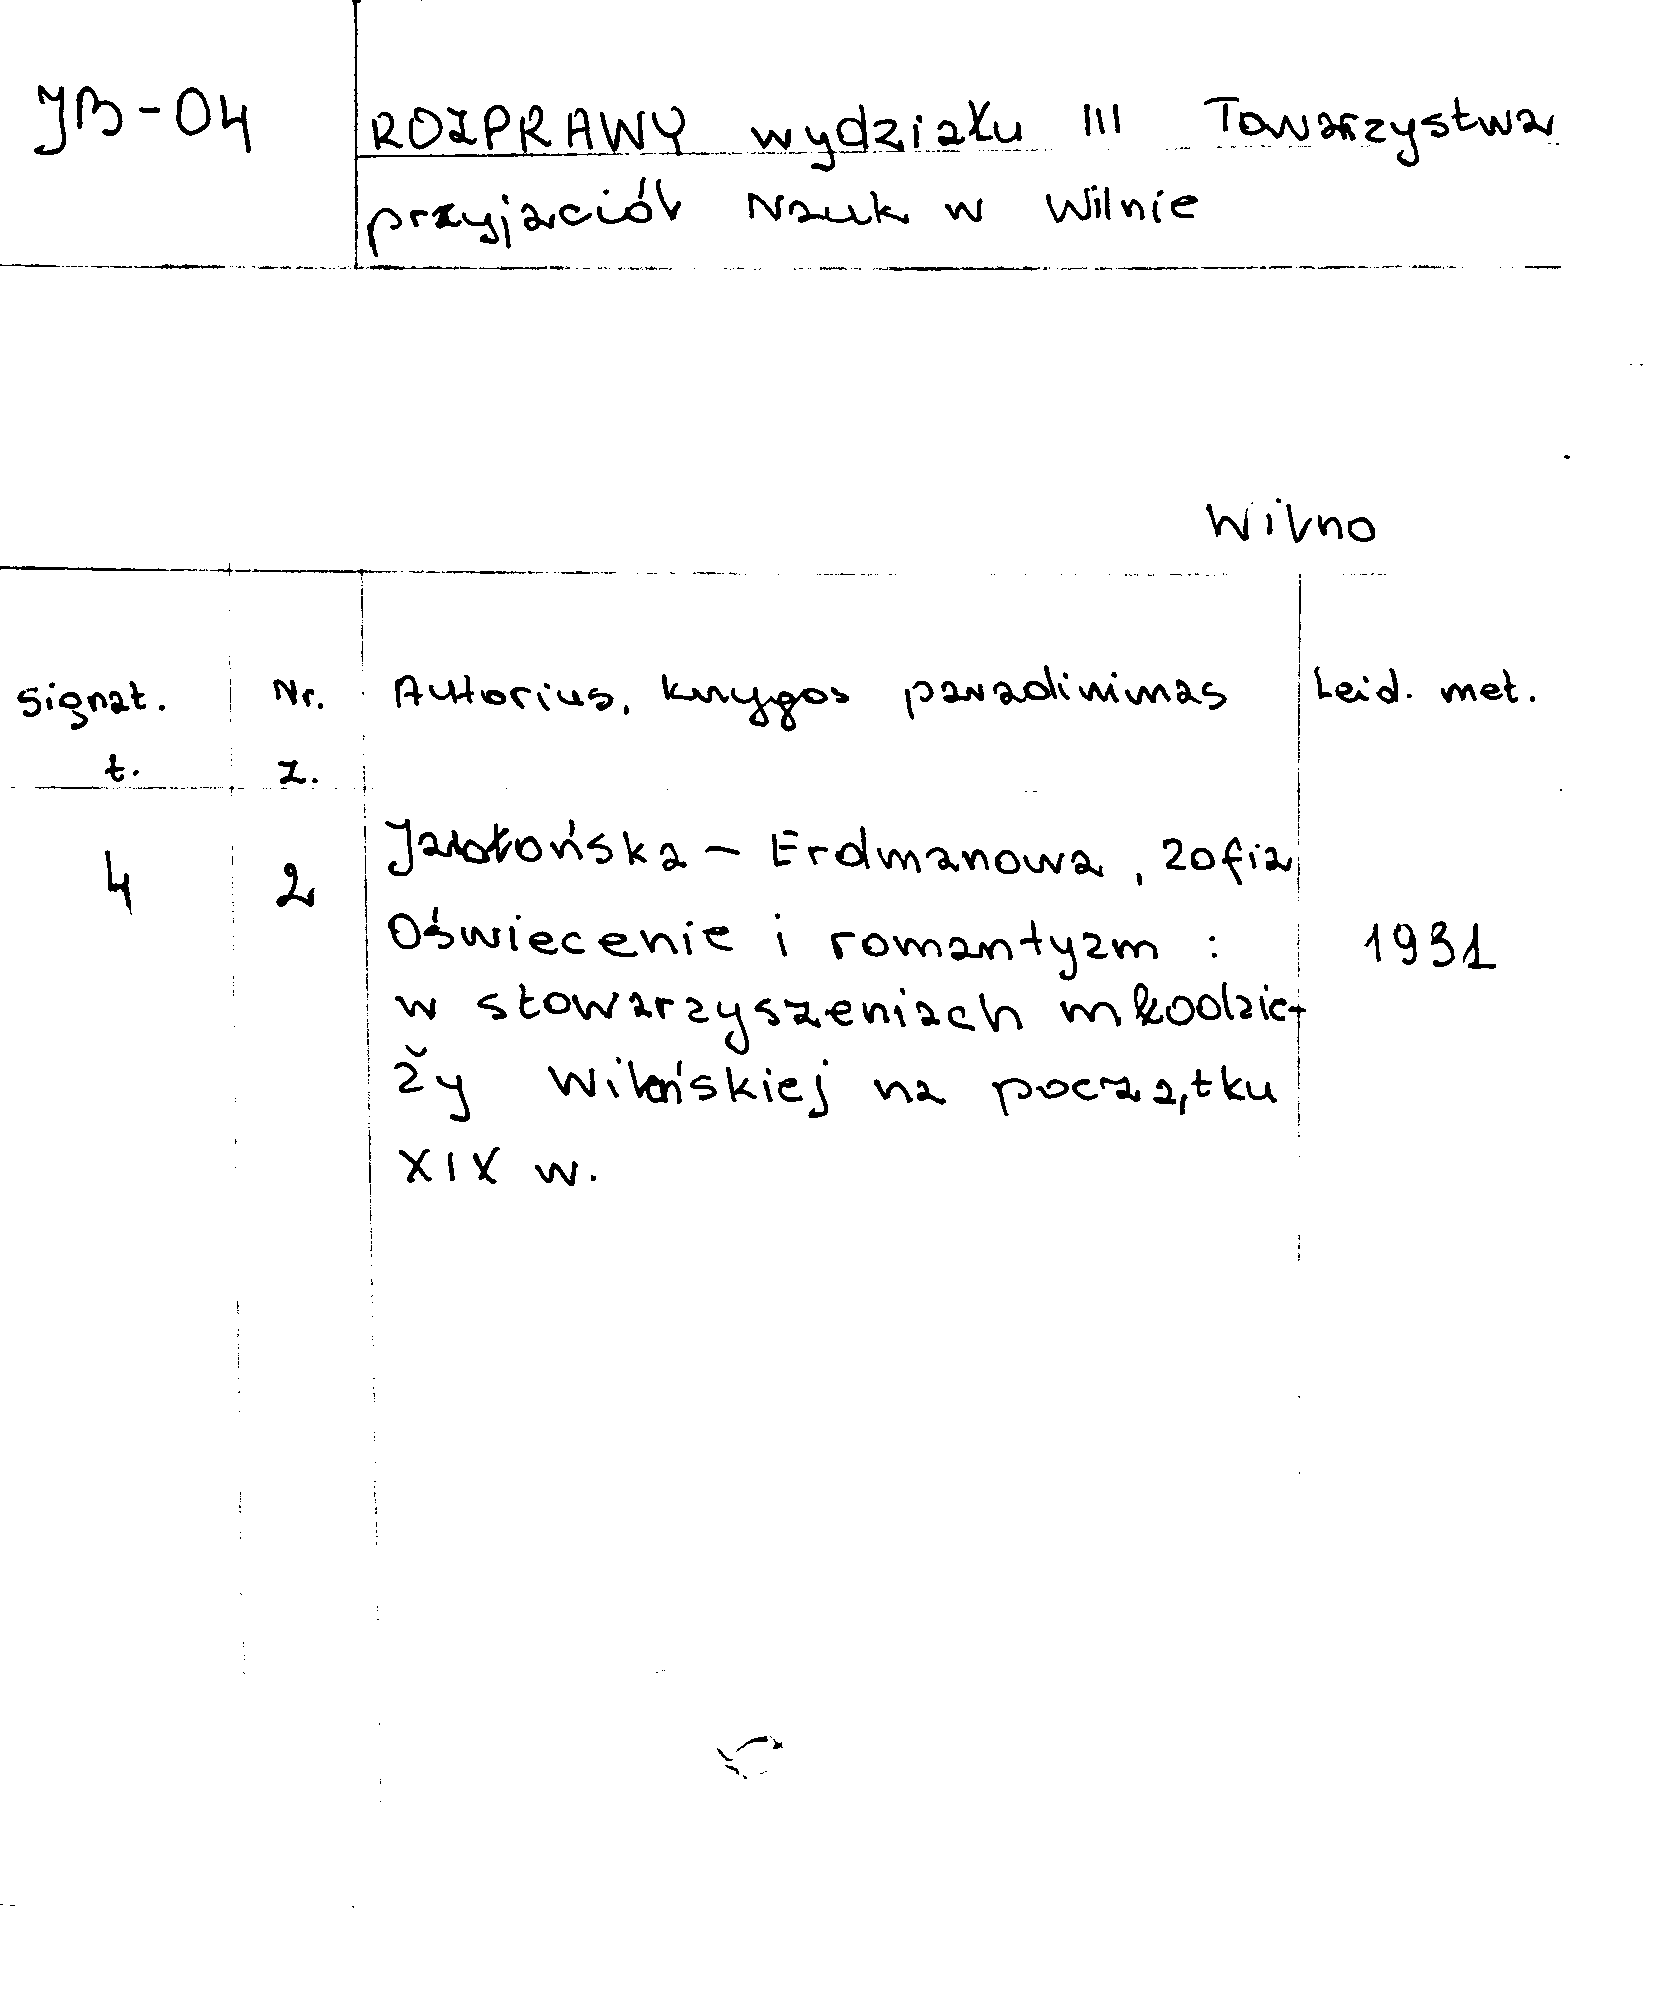 JB-04
ROZPRAWY wydziału III Towarzystwa
przyjaciół Nauk w Wilnie
Wilno
Signat. Nr. Autorius, knygos pavadinimas Leid. met.
t. z.
4 2 Jabłońska - Erdmanowa, Zofia
Oświecenie i romantyzm : 1931
w stowarzyszeniach młodzie-
ży Wileńskiej na początku
XIX w.